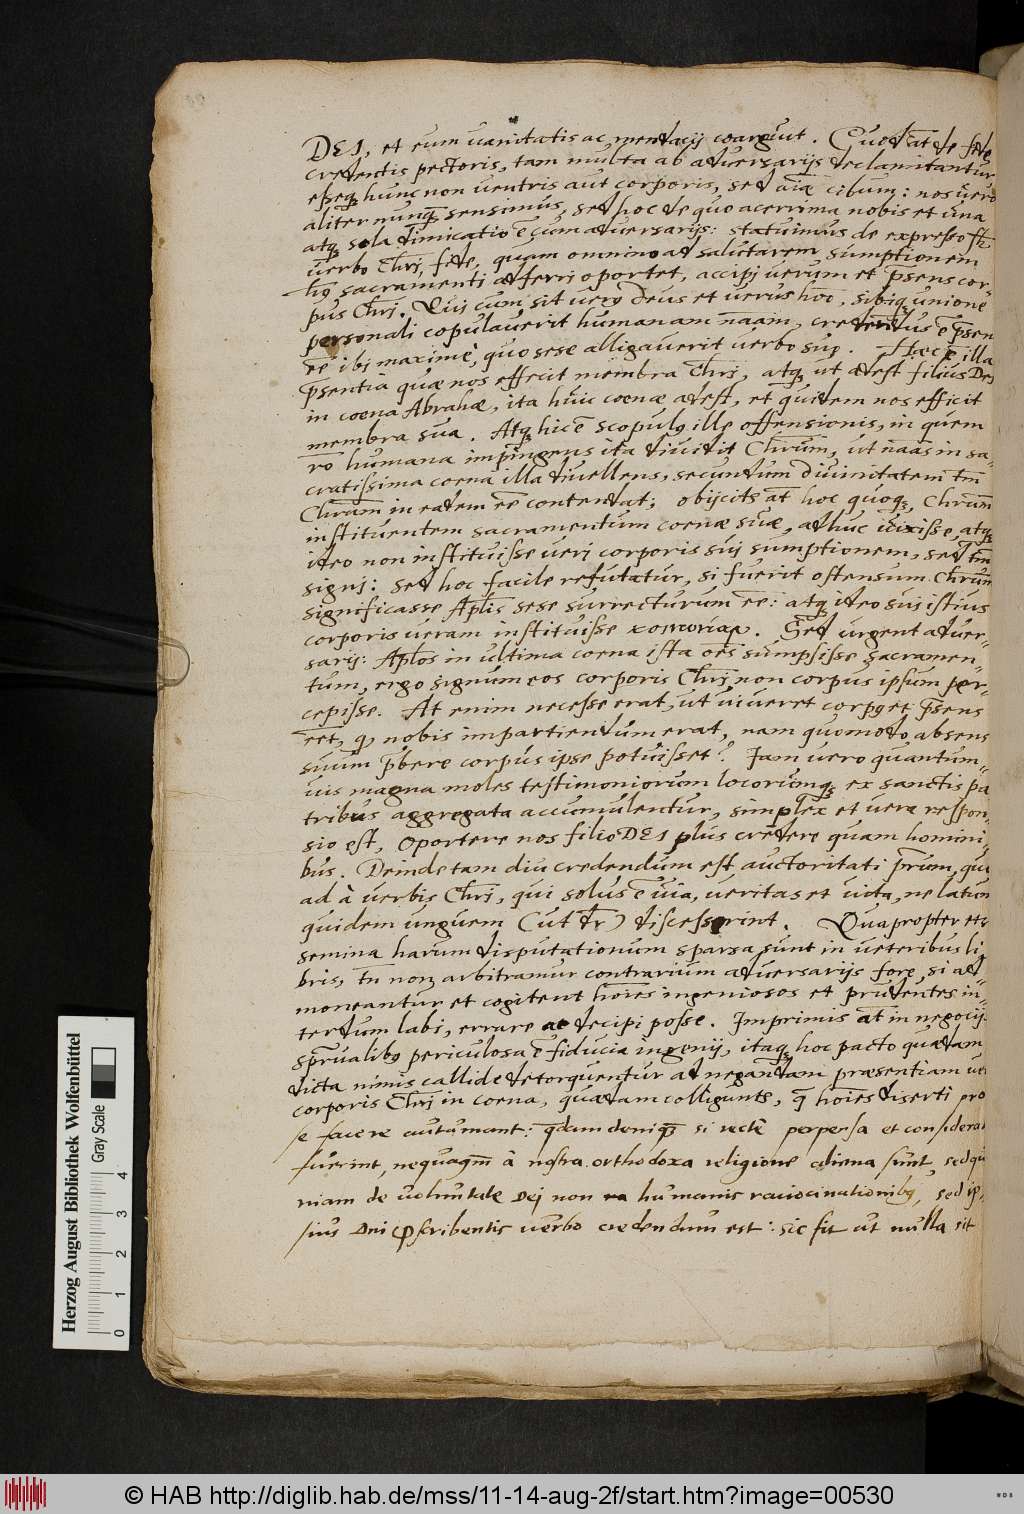 DEI, et eum vanitatis ac mendacij coarguut. Quod at de fide
credentis pectoris, tam multa ab aduersarijs declamitantur
esseq; hunc non uentris aut corporis, sed aiæ cibum: nos uero
aliter nunq̃ sensimus, sed hoc de quo acerrima nobis et una
atq; sola dimicatio ẽ cum aduersarijs: statuimus de expresso
uerbo Chri, fide, quam omnino ad salutarem sumptionem
sacramenti adferri oportet, accipi uerum et p̃sens cor-
pus Chri. Qui cum sit uerq Deus et uerus hõo, sibiq; unione
personali copulauerit humanam naam, credendus ẽ p̃sens
ẽe ibi maxime, quo sese alligauerit uerbo suo. Hæc ẽ illa
p̃sentia quæ nos effecit membra Chri, atq; ut adest filius Dei
in coena Abrahæ, ita huic coenæ adest, et quidem nos efficit
membra sua. Atq; hic ẽ scopulq ille offensionis, in quem
rõ humana impingens ita diuidit Chrum, ut naas in sa-
cratissima coena illa diuellens, secundum diuinitatem tm̃
Chrum in eadem ẽe contendat; obijcits at hoc quoq;, Chrum
instituentem sacramentum coenæ suæ, adhuc uixisse, atq;
ideo non instituisse ueri corporis sui sumptionem, sed tm̃
signi: sed hoc facile refutatur, si fuerit ostensum Chrum
significasse Aplis sese surrecturum ẽe: atq; ideo sui istius
corporis ueram instituisse κοινωνίαν. Sed urgent aduer-
sarij: Aplos in ultima coena ista oẽs sumpsisse sacramen-
tum, ergo signum eos corporis Chri non corpus ipsum per-
cepisse. At enim necesse erat, ut uiueret corpq et p̃sens
ẽet, qd nobis impartiendum erat, nam quomodo absens
suum p̃bere corpus ipse potuisset? Iam uero quantum-
uis magna moles testimoniorum locorumq; ex sanctis pa
tribus aggregata accumulentur, simplex et uere respon-
sio est, Oportere nos filio DEI plus credere quam homini-
bus. Deinde tam diu credendum est auctoritati p̃rum, qui
ad à uerbis Chri, qui solus ẽ uia, ueritas et uita, ne latum
quidem unguem (ut dr) discesserint. Quapropter etsi
semina harum disputationum sparsa sunt in ueteribus li
bris, tñ non arbitramur contrarium aduersarijs fore, si ad-
moneantur et cogitent hoĩes ingeniosos et prudentes in-
terdum labi, errare ac decipi posse. Imprimis at in negocijs
sp̃rualibq periculosa ẽ fiducia ingenij, itaq; hoc pacto quædam
dicta nimis callide detorquentur ad negandam præsentiam ueri
corporis Chri in coena, quædam colligunts, q̃ hoĩes diserti pro
se facere autumant: q̃dam deniq; si recte perpensa et considerata
fuerint, nequaqm̃ à nostra orthodoxa religione aliena sunt, sed qũ
niam de uoluntate Dei non humanis ratiocinationibq, sed ip-
sius Dni p̃scribentis uerbo credendum est: sic fit ut nulla sit
Herzog August Bibliothek Wolfenbüttel
Gray Scale
0 1 2 3 4
© HAB http://diglib.hab.de/mss/11-14-aug-2f/start.htm?image=00530